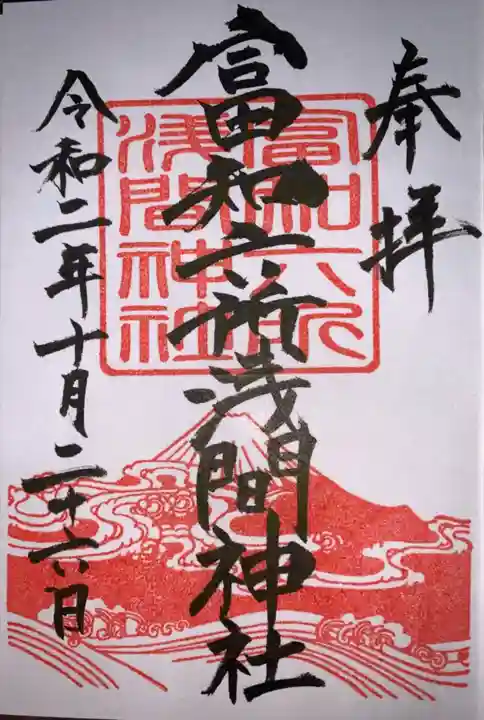 奉拝
富知六所浅間神社
富知六所
浅間神社
令和二年十月二十六日